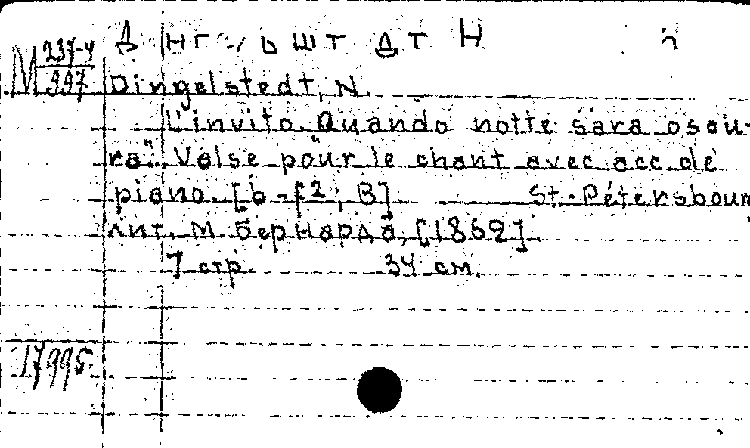 М 237-4
997
Dingelstedt, N.
L'invito. Quando notte sara oscu-
ra". Valse pour le chant avec acc. de
piano. [b-f2; B] St.-Petersbourg
лит. М. Бернарда, [1862]
7 стр. 34 см.
17995